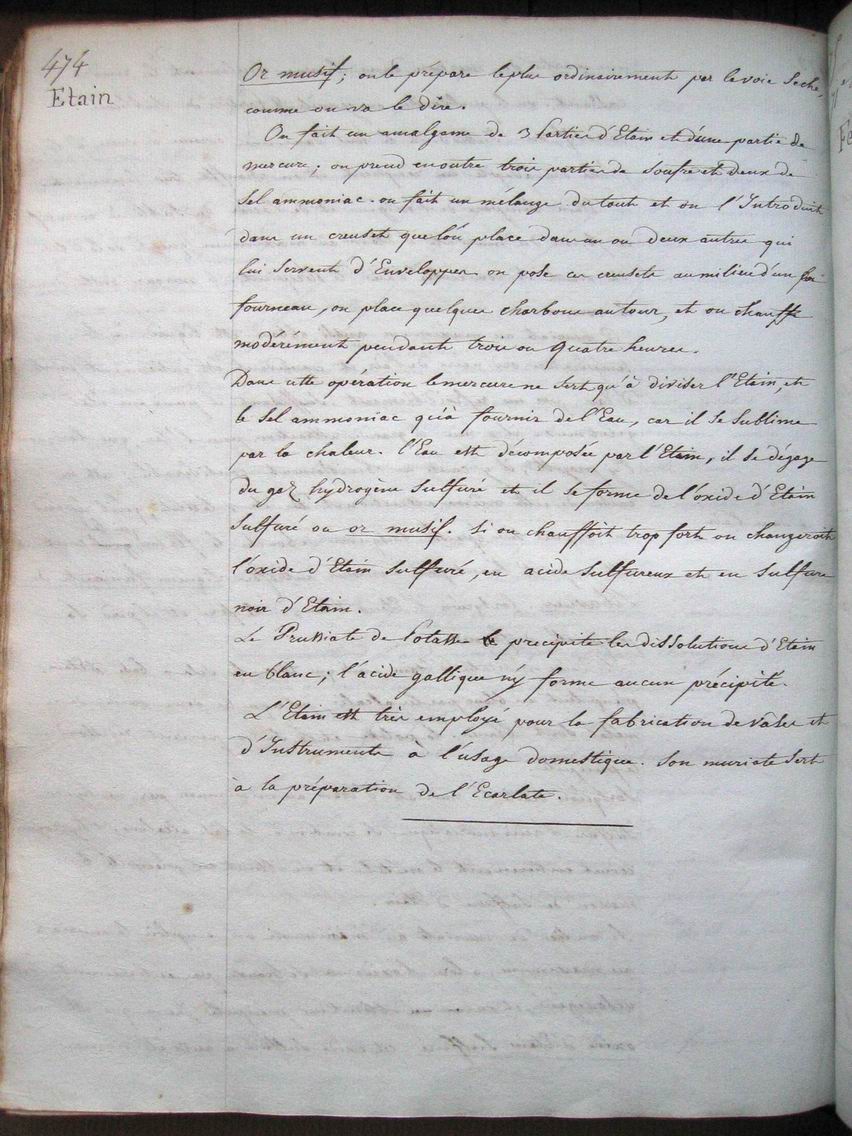 474
Etain
Or musif; on le prépare le plus ordinairement par la voie seche,
comme on va le dire.
On fait un amalgame de 3 Parties d'Etain et d'une partie de
mercure; on prend en outre trois parties de soufre et deux de
sel ammoniac. on fait un mélange du tout et on l'Introduit
dans un creuset que l'on place dans un ou deux autres qui
lui servent d'Enveloppes on pose ces creusets au milieu d'un
fourneau, on place quelques charbons autour, et on chauffe
modérement pendant trois ou Quatre heures.
Dans cette opération le mercure ne sert qu'à diviser l'Etain, et
le sel ammoniac qu'à fournir de l'Eau, car il se sublime
par la chaleur. l'Eau est décomposée par l'Etain, il se dégage
du gaz hydrogène sulfuré et il se forme de l'oxide d'Etain
sulfuré ou or musif. si on chauffoit trop fort on changeroit
l'oxide d'Etain sulfuré, en acide sulfureux et en sulfure
noir d'Etain.
Le Prussiate de Potasse precipite les dissolutions d'Etain
en blanc; l'acide gallique n'y forme aucun précipité.
L'Etain est très employé pour la fabrication de vases et
d'Instruments à l'usage domestique. son muriate sert
à la préparation de l'Ecarlate.